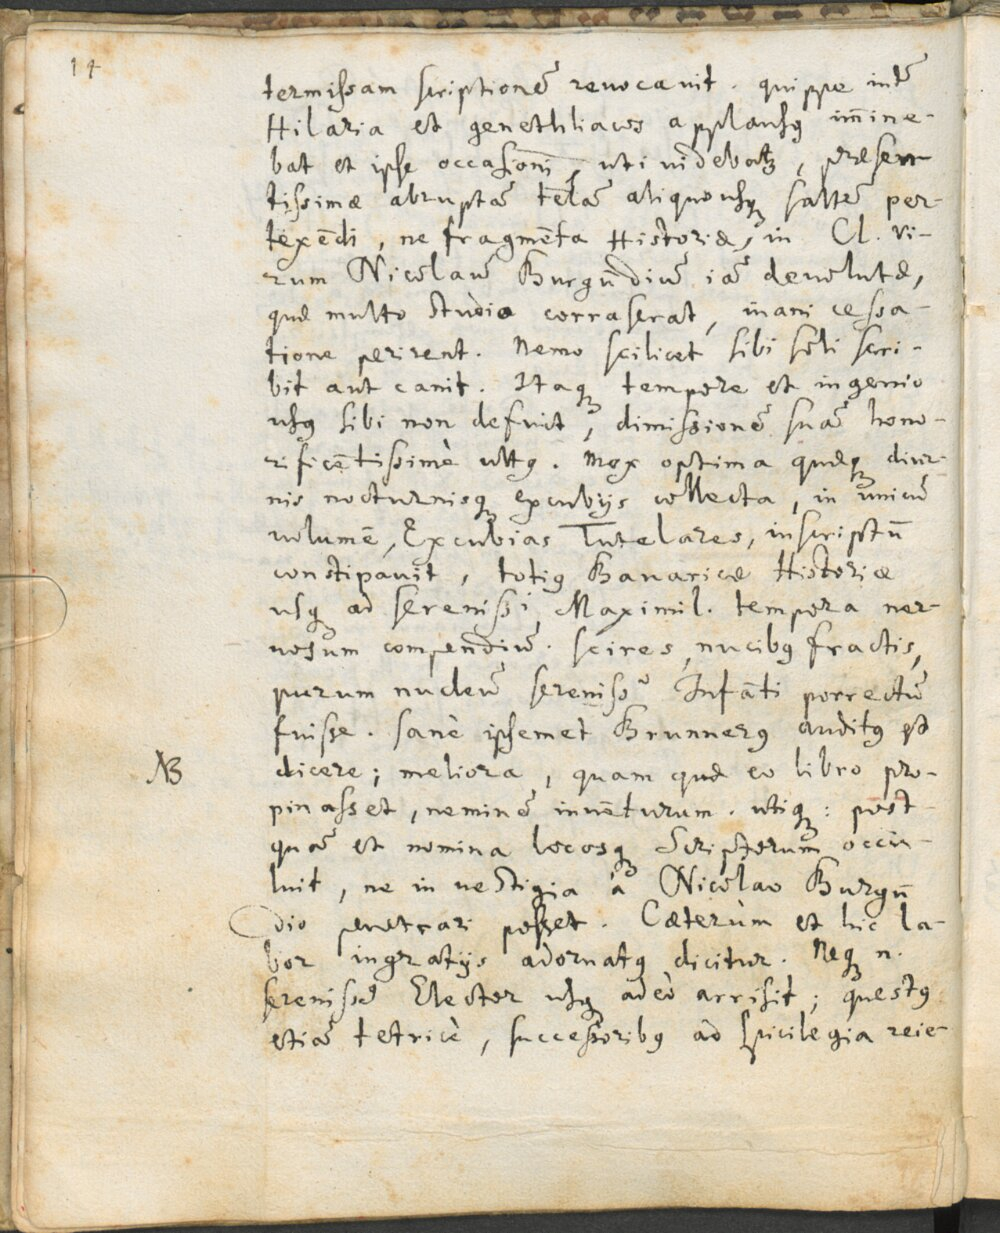 14
termissam scriptionē revocavit. quippe intē
Hilaria et genethliacos applausꝯ iminē-
bat et ipse occasioni, uti videbatꝛ, præsen-
tissimæ abruptā telā aliquousqꝫ saltē per-
texēdi, ne fragmēta Historiæ, in Cl. Vi-
rum Nicolaū Burgūdiū iā devolutæ,
quæ multo studio corraserat, inani cessa-
tione perirent. Nemo scilicet sibi soli scri-
bit aut canit. Itaqꝫ tempore et ingenio
usꝯ sibi non defuit, dimissionē suā hono-
rificētissimè ultꝯ. Mox optima quæqꝫ diur-
nis nocturnisqꝫ excubijs collecta, in unicū
volumē, Excubias Tutelares, inscriptū
constipavit, totiꝯ Bavaricæ Historiæ
usqꝫ ad serenissi Maximil. tempora ner-
vosum compendiū. scires, nucibꝯ fractis,
purum nucleū serenisso Infāti porrectū
fuisse. sanè ipsemet Brunnerꝯ auditꝯ est
NB
dicere; meliora, quam quæ eo libro pro-
pinasset, neminē invēturum. utiqꝫ: post
quā et nomina locosqꝫ Scriptorum occu-
luit, ne in vestigia à Nicolao Burgū
dio penetrari posset. Cæterùm et hic la-
bor ingratijs adornatꝯ dicitur. Neqꝫ n.
serenissꝰ Elector usꝯ adeò arrisit; questꝯ
etiā tetricè, successoribꝯ ad spicilegia reie-